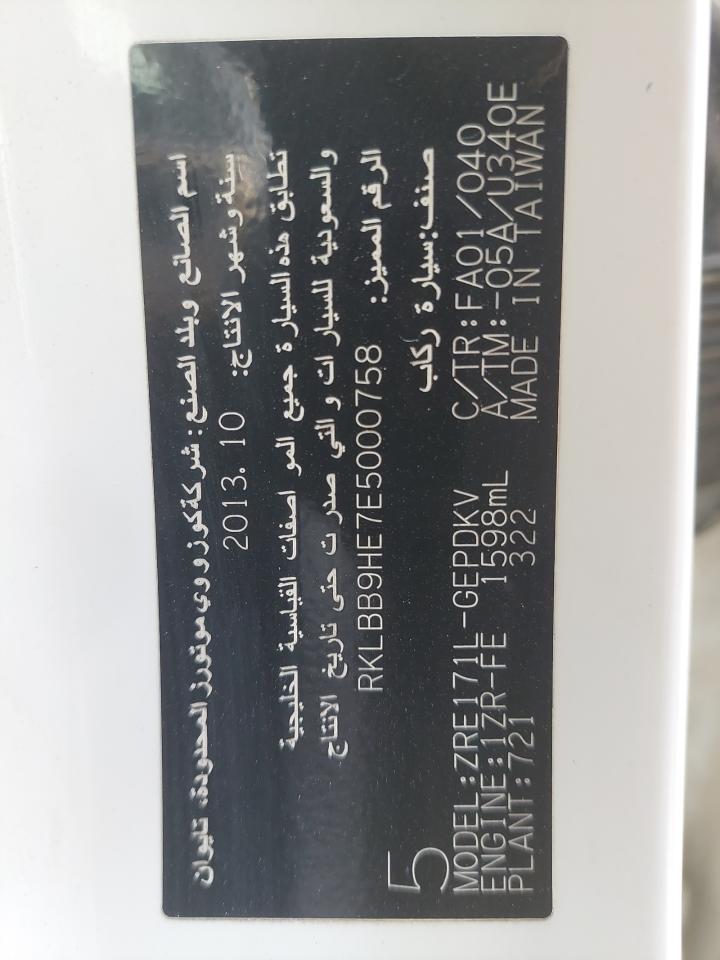 اسم الصانع وبلد الصنع: شركة كوزووي موتورز المحدودة، تايوان
سنة وشهر الانتاج: 2013.10
تطابق هذه السيارة جميع المواصفات القياسية الخليجية
والسعودية للسيارات والتي صدرت حتى تاريخ الانتاج
الرقم المميز: RKLBB9HE7E5000758
صنف: سيارة ركاب
5
MODEL:ZRE171L-GEPDKV C/TR:FA01/040
ENGINE:1ZR-FE 1598mL A/TM:-05A/U340E
PLANT:721 322 MADE IN TAIWAN